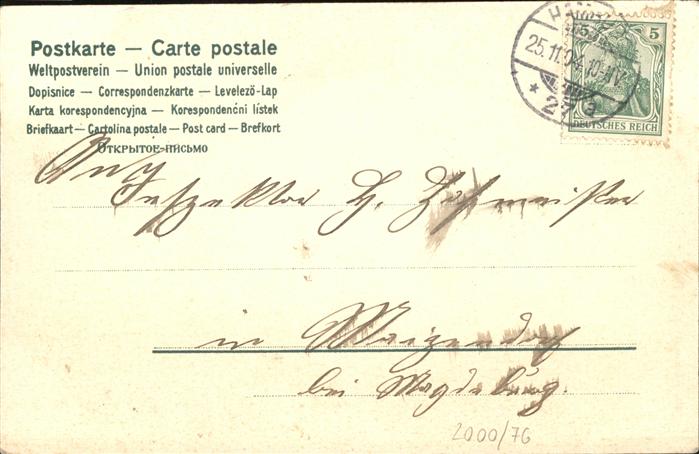 Postkarte — Carte postale
Weltpostverein — Union postale universelle
Dopisnice — Correspondenzkarte — Levelező-Lap
Karta korespondencyjna — Korespondenční lístek
Briefkaart — Cartolina postale — Post card — Brefkort
Открытое-письмо
5
DEUTSCHES REICH
25.11.04
An
Inspektor H.
in
bei Magdeburg.
2000/76